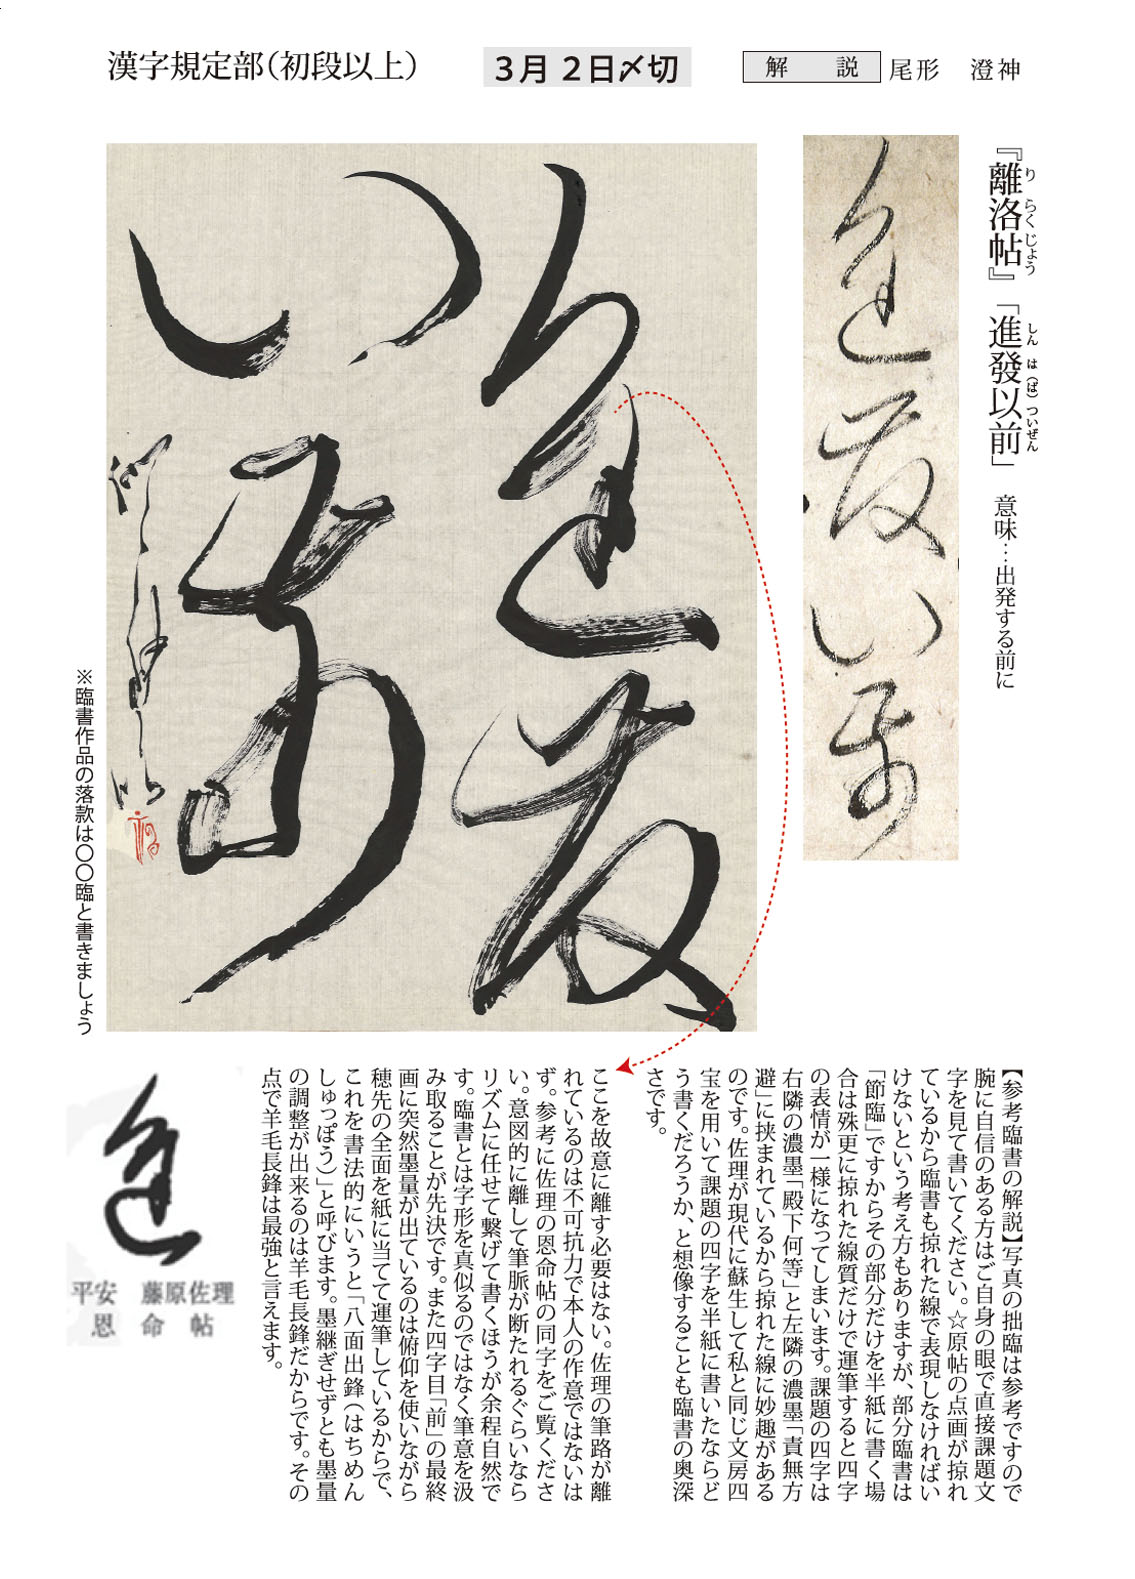 漢字規定部（初段以上）
３月２日〆切
解説
尾形　澄神
『離洛帖』「進發以前」　意味…出発する前に
りらくじょう　しんは（ぱ）ついぜん
進發以前
進發
以前
※臨書作品の落款は〇〇臨と書きましょう
【参考臨書の解説】写真の拙臨は参考ですので
腕に自信のある方はご自身の眼で直接課題文
字を見て書いてください。☆原帖の点画が掠れ
ているから臨書も掠れた線で表現しなければい
けないという考え方もありますが、部分臨書は
「節臨」ですからその部分だけを半紙に書く場
合は殊更に掠れた線質だけで運筆すると四字
の表情が一様になってしまいます。課題の四字は
右隣の濃墨「殿下何等」と左隣の濃墨「責無方
避」に挟まれているから掠れた線に妙趣がある
のです。佐理が現代に蘇生して私と同じ文房四
宝を用いて課題の四字を半紙に書いたならど
う書くだろうか、と想像することも臨書の奥深
さです。
ここを故意に離す必要はない。佐理の筆路が離
れているのは不可抗力で本人の作意ではないは
ず。参考に佐理の恩命帖の同字をご覧くださ
い。意図的に離して筆脈が断たれるぐらいなら
リズムに任せて繋げて書くほうが余程自然で
す。臨書とは字形を真似るのではなく筆意を汲
み取ることが先決です。また四字目「前」の最終
画に突然墨量が出ているのは俯仰を使いながら
穂先の全面を紙に当てて運筆しているからで、
これを書法的にいうと「八面出鋒（はちめん
しゅっぽう）」と呼びます。墨継ぎせずとも墨量
の調整が出来るのは羊毛長鋒だからです。その
点で羊毛長鋒は最強と言えます。
進
平安　藤原佐理
恩命帖